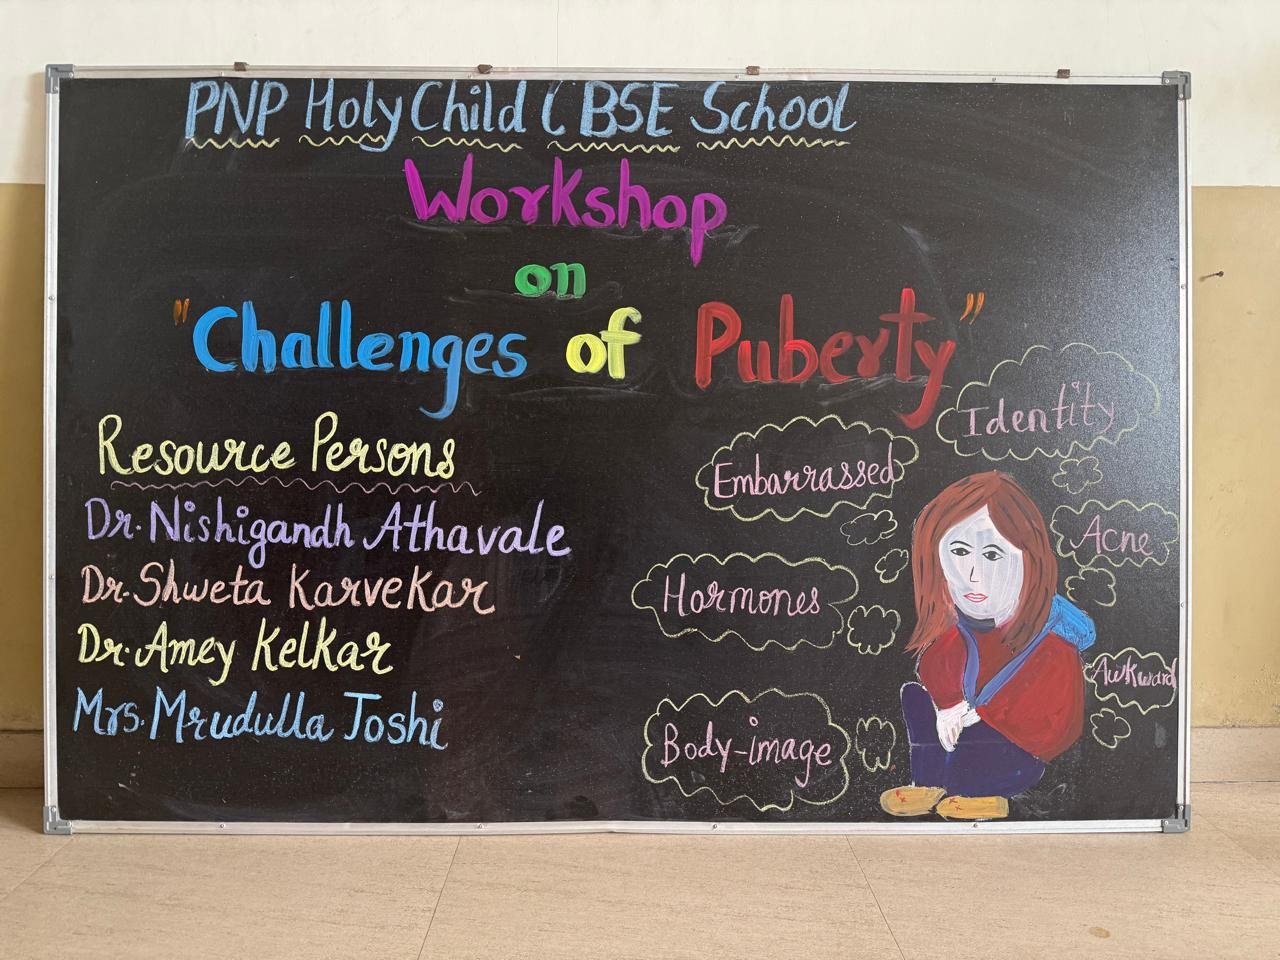 PNP Holy Child CBSE School
Workshop
on
"Challenges of Puberty"
Resource Persons
Dr. Nishigandh Athavale
Dr. Shweta Karvekar
Dr. Amey Kelkar
Mrs. Mrudulla Joshi
Identity
Embarrassed
Acne
Hormones
Awkward
Body-image